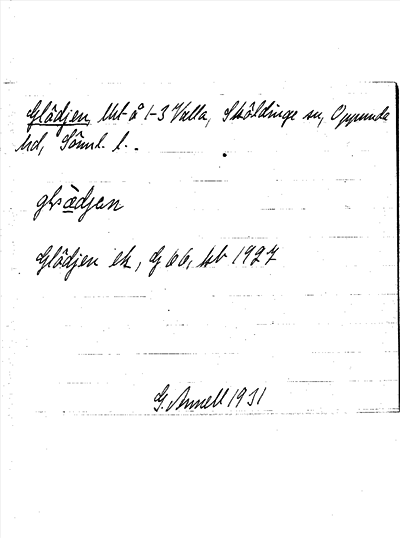 Glädjen, lht å 1-3 Valla, Sköldinge sn, Oppunda
hd, Sörml. l.
glädjan
Glädjen ek, G 66, kb 1927
G. Annell 1931